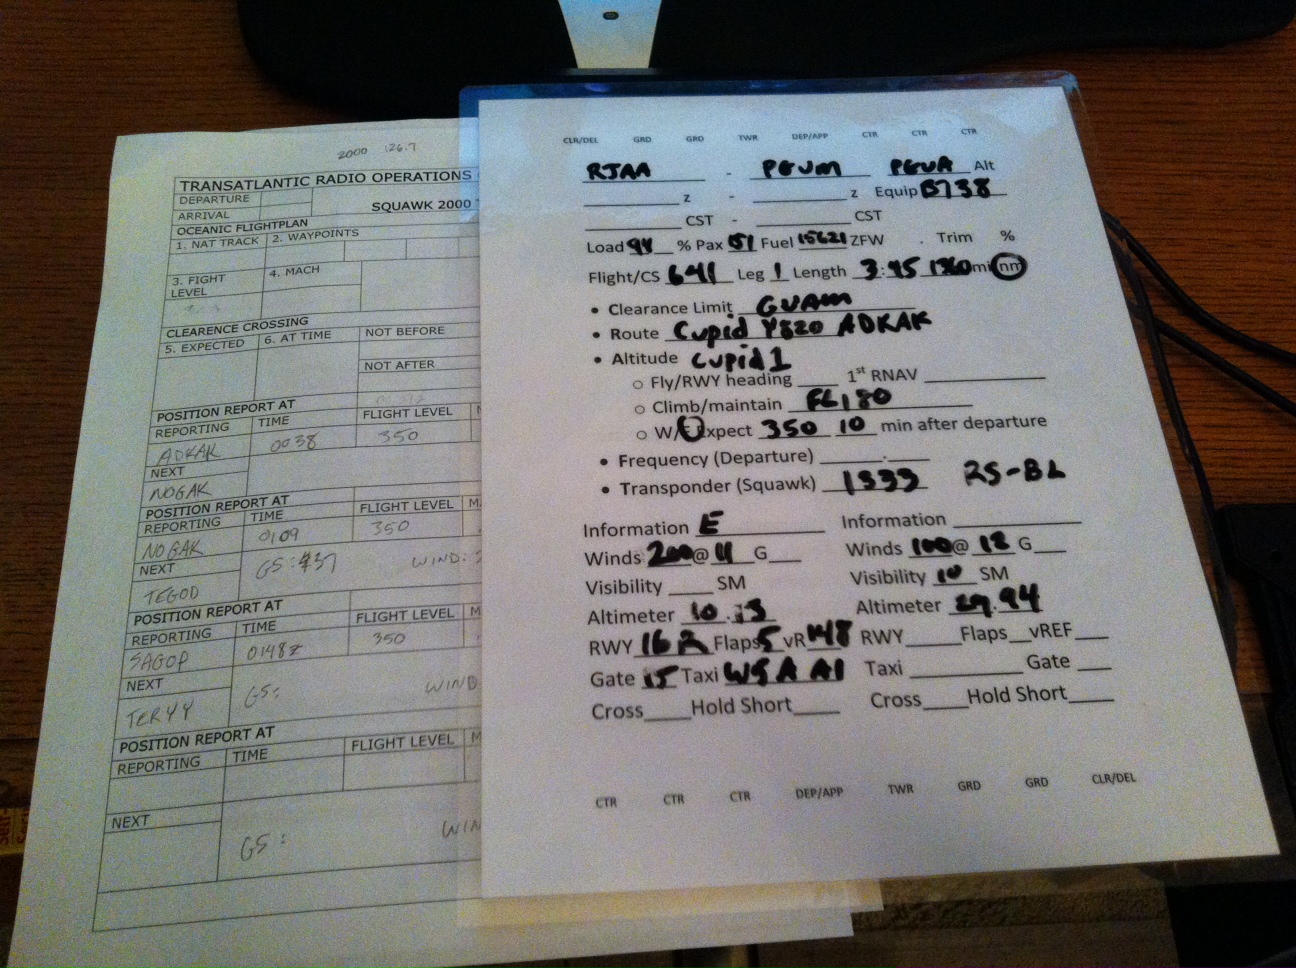 2000 126.7
TRANSATLANTIC RADIO OPERATIONS
DEPARTURE
ARRIVAL
SQUAWK 2000
OCEANIC FLIGHTPLAN
1. NAT TRACK 2. WAYPOINTS
3. FIGHT LEVEL
4. MACH
CLEARENCE CROSSING
5. EXPECTED 6. AT TIME NOT BEFORE
NOT AFTER
POSITION REPORT AT
REPORTING TIME FLIGHT LEVEL
ADKAK 0038 350
NEXT
NOGAK
POSITION REPORT AT
REPORTING TIME FLIGHT LEVEL
NOGAK 0109 350
NEXT
TEGOD
GS: 437 WIND:
POSITION REPORT AT
REPORTING TIME FLIGHT LEVEL
SAGOP 0148z 350
NEXT
TERYY
GS: WIND
POSITION REPORT AT
REPORTING TIME FLIGHT LEVEL
NEXT
GS: WIN
CLR/DEL GRD GRD TWR DEP/APP CTR CTR CTR
RJAA - PGUM PGUA Alt
z - z Equip B738
CST - CST
Load 94 % Pax 151 Fuel 15621 ZFW . Trim %
Flight/CS 641 Leg 1 Length 3:45 1360 mi nm
• Clearance Limit GUAM
• Route Cupid Y820 ADKAK
• Altitude Cupid 1
○ Fly/RWY heading 1st RNAV
○ Climb/maintain FL180
○ W/Expect 350 10 min after departure
• Frequency (Departure) .
• Transponder (Squawk) 1333 RS-BL
Information E Information
Winds 200@ 11 G Winds 100@ 12 G
Visibility SM Visibility 10 SM
Altimeter 10.13 Altimeter 29.94
RWY 16R Flaps 5 vR 148 RWY Flaps vREF
Gate 15 Taxi W9 A A1 Taxi Gate
Cross Hold Short Cross Hold Short
CTR CTR CTR DEP/APP TWR GRD GRD CLR/DEL